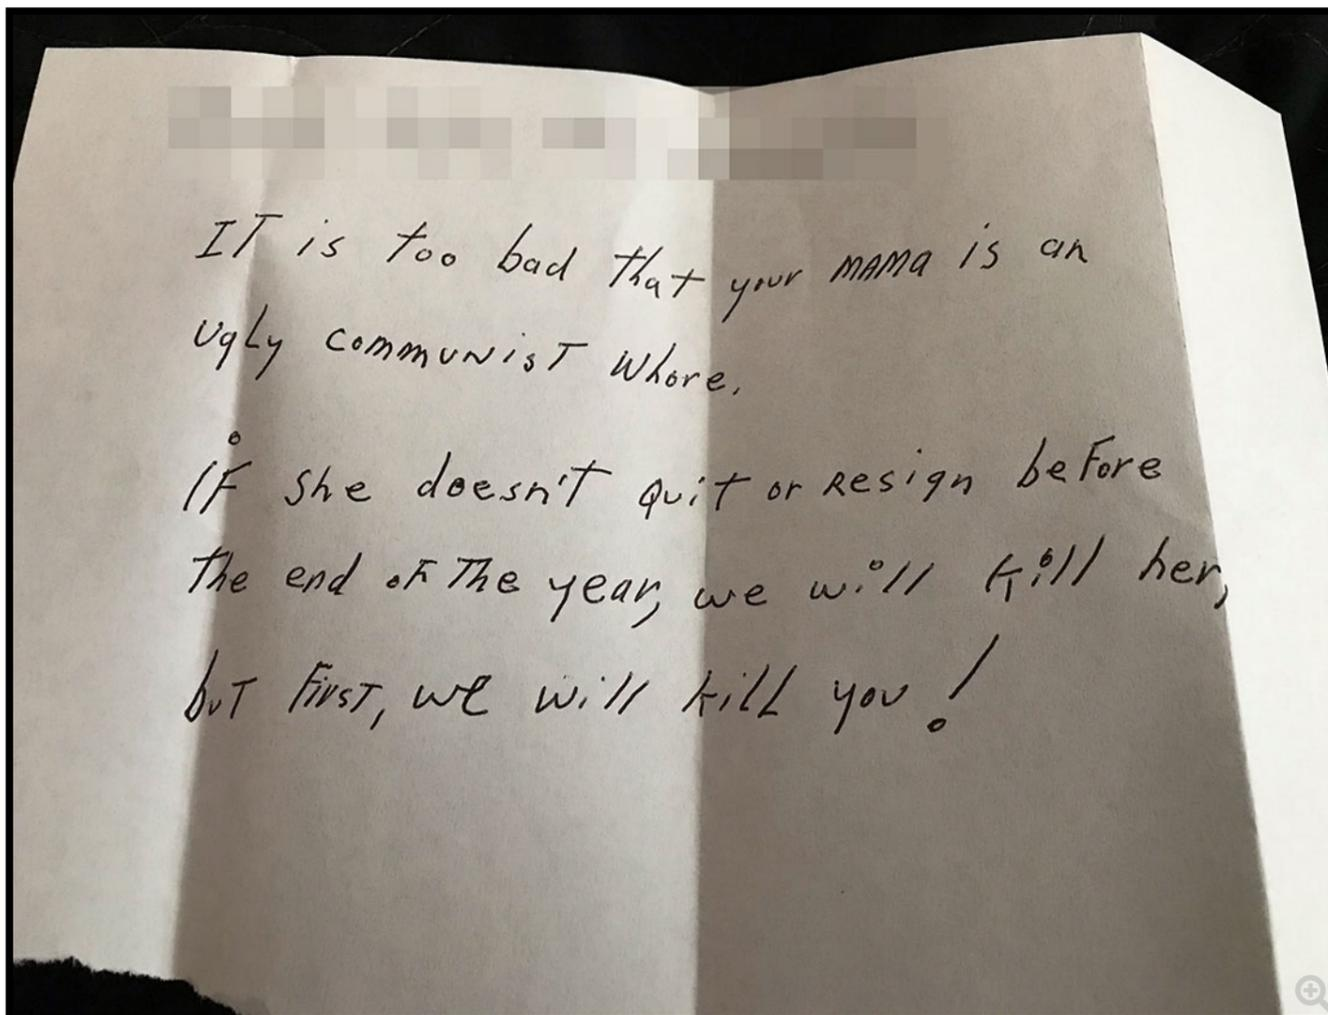 IT is too bad that your MAMa is an
Ugly CommUNisT Whore.
iF She doesn'T QuiT or Resign beFore
The end oF The year, we will kill her,
buT First, we will kill you!